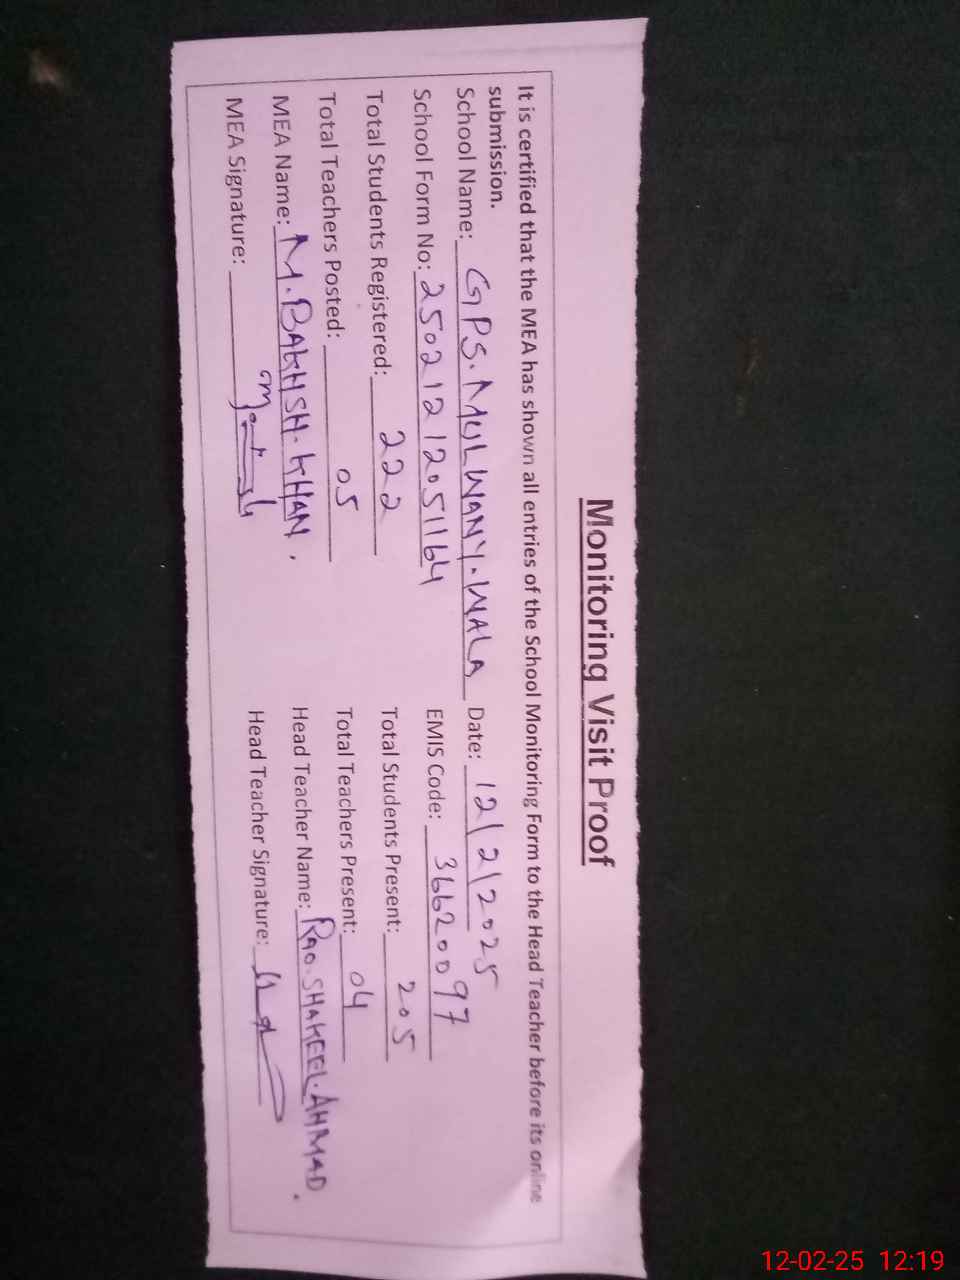 Monitoring Visit Proof
It is certified that the MEA has shown all entries of the School Monitoring Form to the Head Teacher before its online
submission.
School Name: GPS. MULWANY. WALA Date: 12/2/2025
School Form No: 250212 12051164 EMIS Code: 36620097
Total Students Registered: 222 Total Students Present: 205
Total Teachers Posted: 05 Total Teachers Present: 04
MEA Name: M. BAKHSH. KHAN. Head Teacher Name: RAO. SHAKEEL. AHMAD.
MEA Signature: Head Teacher Signature:
12-02-25 12:19